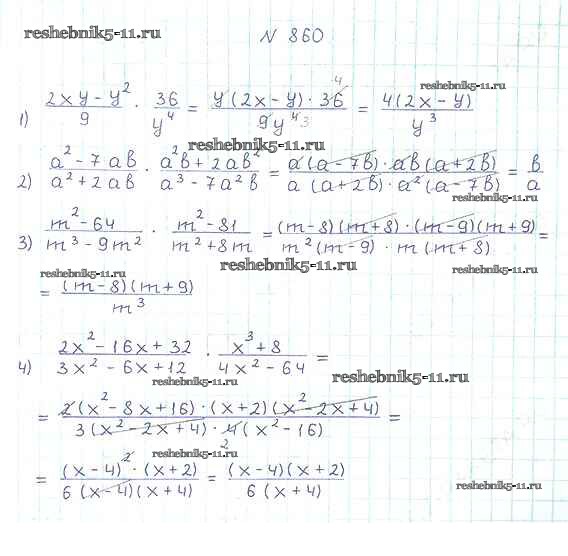 reshebnik5-11.ru
N 860
reshebnik5-11.ru
1) (2xy - y²)/9 · 36/y⁴ = (y(2x - y) · 36⁴)/(9y⁴³) = 4(2x - y)/y³
reshebnik5-11.ru
2) (a² - 7ab)/(a² + 2ab) · (a²b + 2ab²)/(a³ - 7a²b) = (a(a - 7b) · ab(a + 2b))/(a(a + 2b) · a²(a - 7b)) = b/a
3) (m² - 64)/(m³ - 9m²) · (m² - 81)/(m² + 8m) = ((m - 8)(m + 8) · (m - 9)(m + 9))/(m²(m - 9) · m(m + 8)) =
reshebnik5-11.ru
reshebnik5-11.ru
reshebnik5-11.ru
= ((m - 8)(m + 9))/m³
4) (2x² - 16x + 32)/(3x² - 6x + 12) · (x³ + 8)/(4x² - 64) =
reshebnik5-11.ru
reshebnik5-11.ru
= (2(x² - 8x + 16) · (x + 2)(x² - 2x + 4))/(3(x² - 2x + 4) · 4₂(x² - 16)) =
reshebnik5-11.ru
= ((x - 4)² · (x + 2))/(6(x - 4)(x + 4)) = ((x - 4)(x + 2))/(6(x + 4))
reshebnik5-11.ru
reshebnik5-11.ru